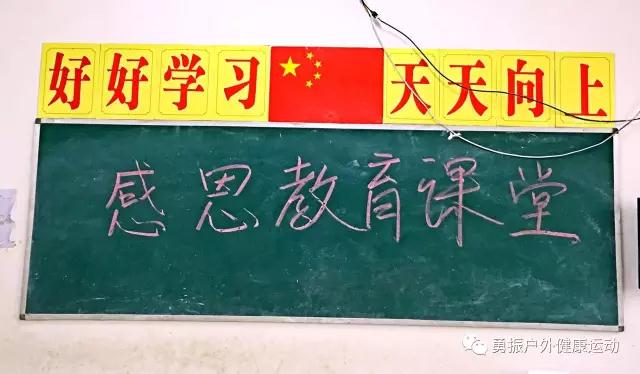 好好学习 天天向上
感恩教育课堂
勇振户外健康运动